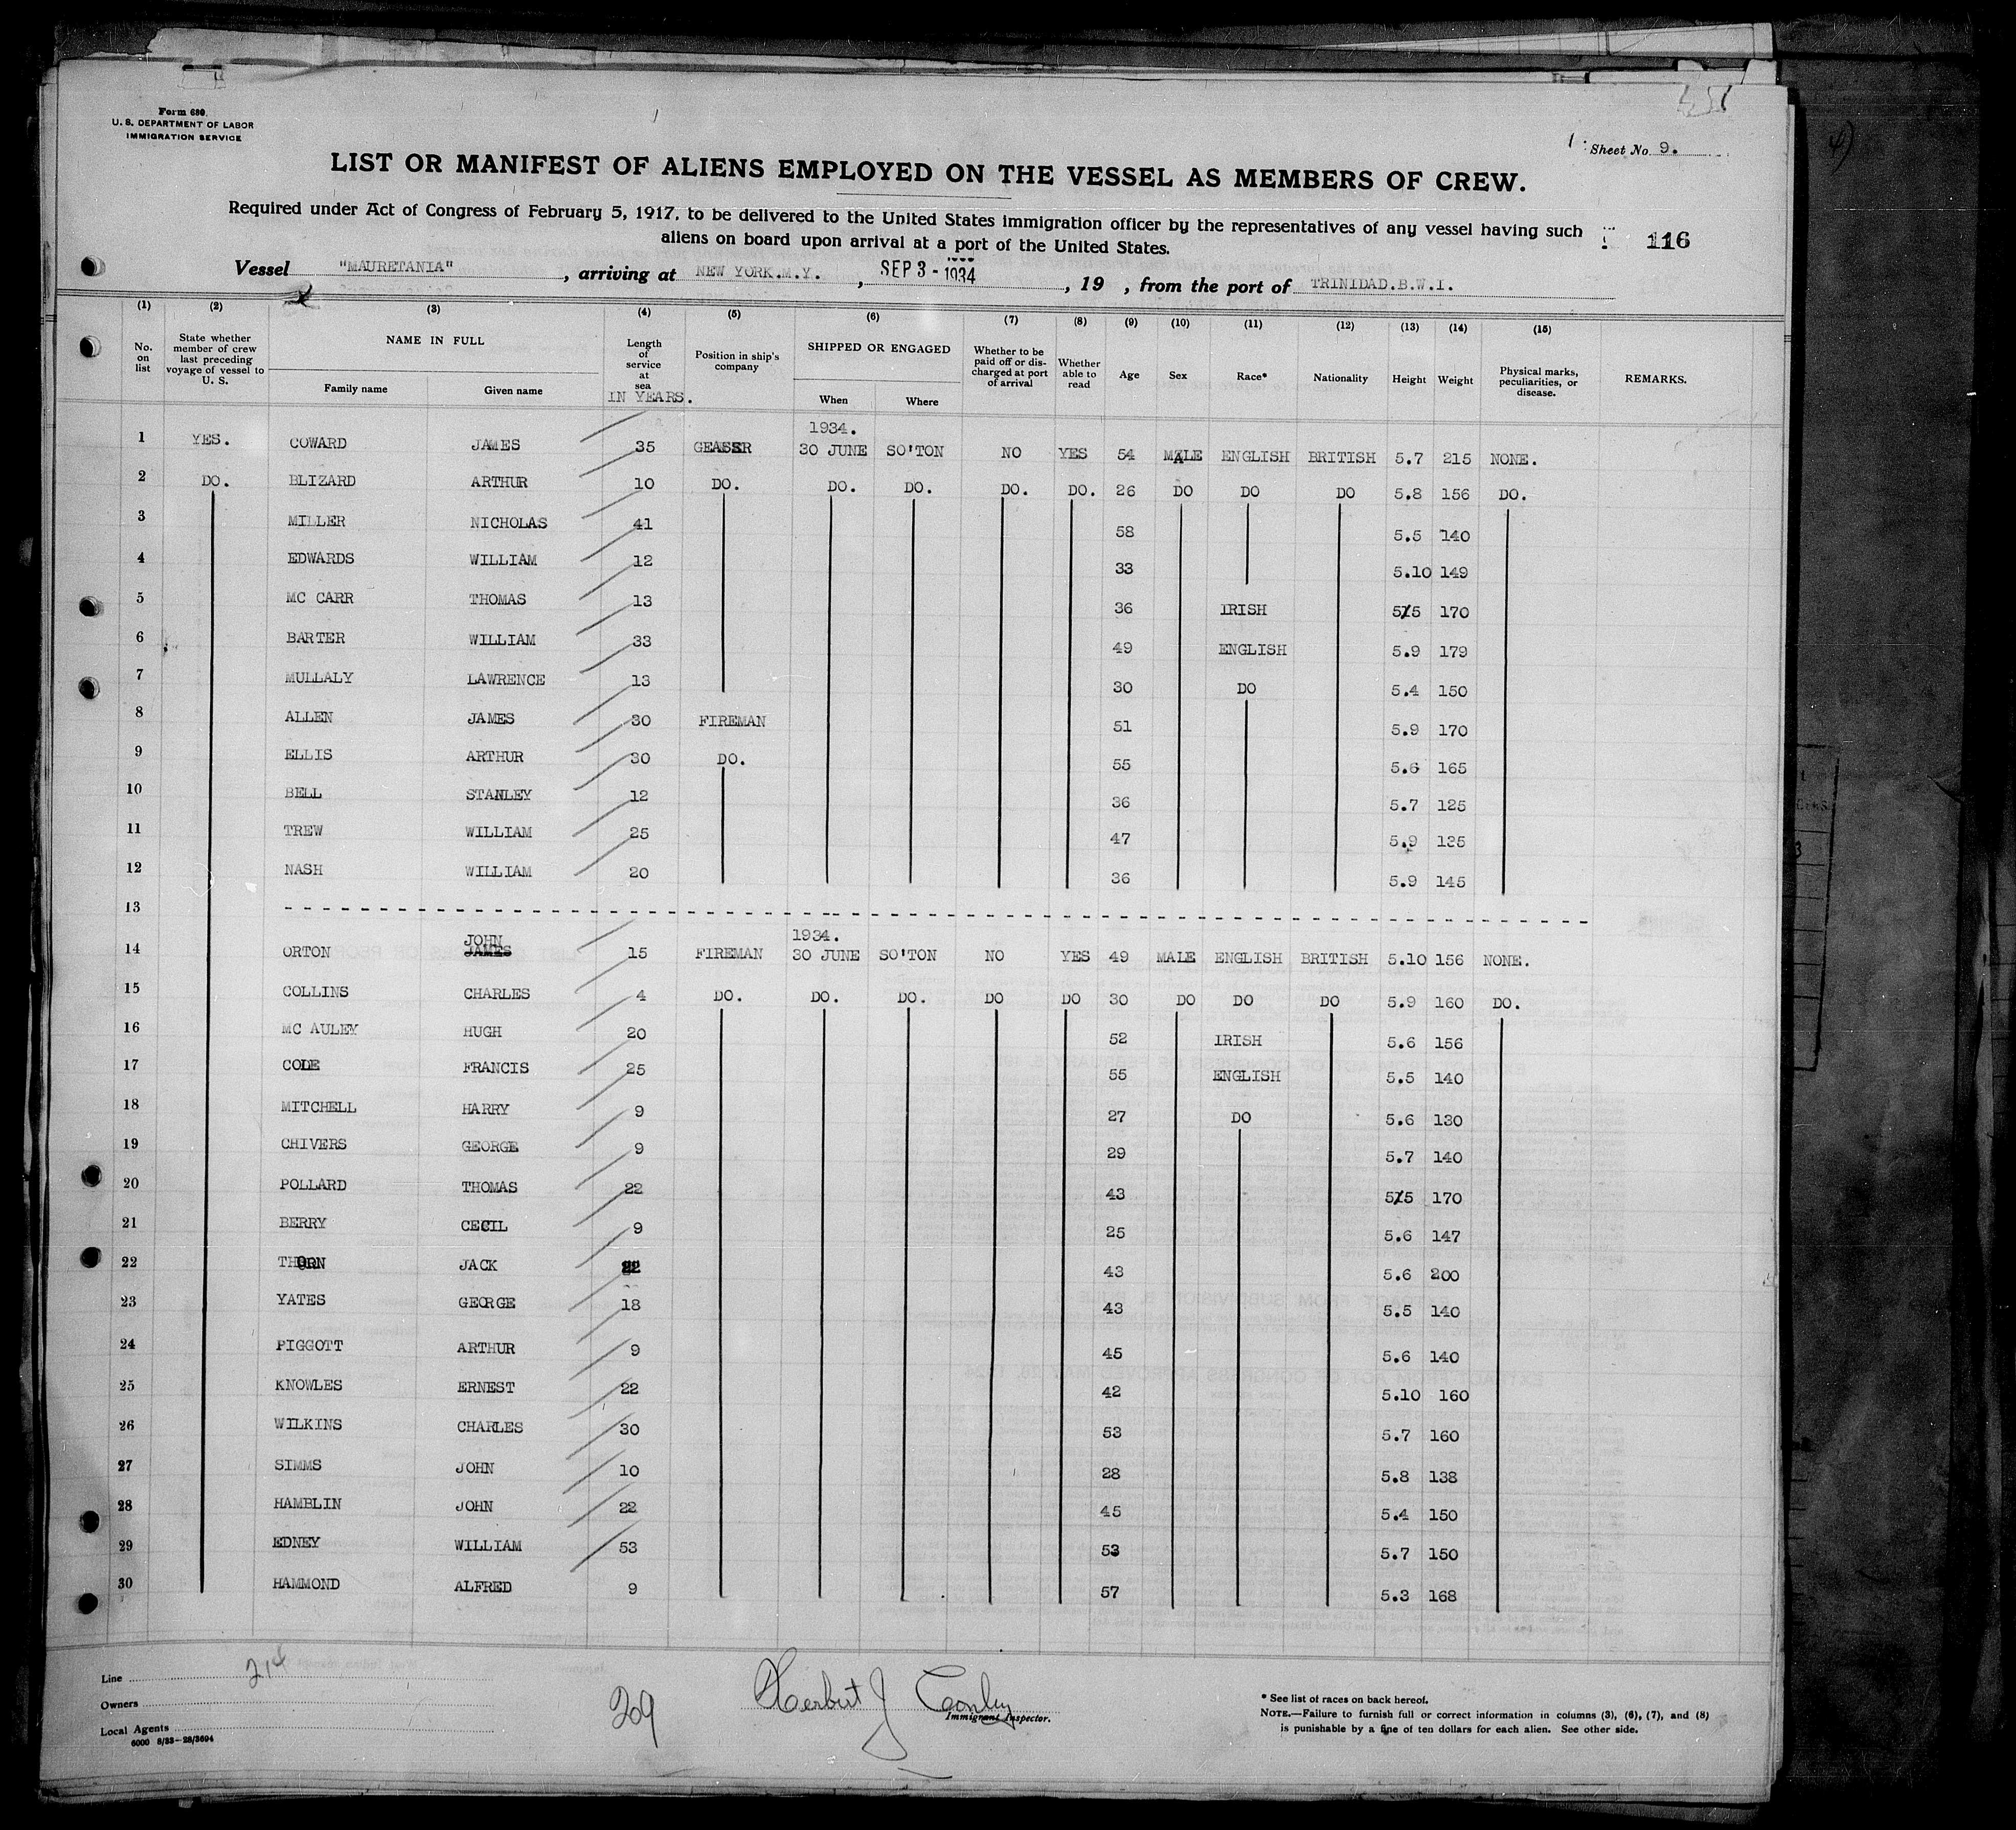 Form 680.
U. S. DEPARTMENT OF LABOR
IMMIGRATION SERVICE
Sheet No. 9.
LIST OR MANIFEST OF ALIENS EMPLOYED ON THE VESSEL AS MEMBERS OF CREW.
Required under Act of Congress of February 5, 1917, to be delivered to the United States immigration officer by the representatives of any vessel having such
aliens on board upon arrival at a port of the United States.
116
Vessel "MAURETANIA", arriving at NEW YORK.M.Y., SEP 3 - 1934, 19 , from the port of TRINIDAD.B.W.I.
(1) (2) (3) (4) (5) (6) (7) (8) (9) (10) (11) (12) (13) (14) (15)
No. on list State whether member of crew last preceding voyage of vessel to U. S. NAME IN FULL Family name Given name Length of service at sea IN YEARS. Position in ship's company SHIPPED OR ENGAGED When Where Whether to be paid off or discharged at port of arrival Whether able to read Age Sex Race* Nationality Height Weight Physical marks, peculiarities, or disease. REMARKS.
1 YES. COWARD JAMES 35 1934. 30 JUNE SO'TON NO YES 54 MALE ENGLISH BRITISH 5.7 215 NONE.
2 DO. BLIZARD ARTHUR 10 DO. DO. DO. DO. DO. 26 DO DO DO 5.8 156 DO.
3 MILLER NICHOLAS 41 58 5.5 140
4 EDWARDS WILLIAM 12 33 5.10 149
5 MC CARR THOMAS 13 36 IRISH 5.5 170
6 BARTER WILLIAM 33 49 ENGLISH 5.9 179
7 MULLALY LAWRENCE 13 30 DO 5.4 150
8 ALLEN JAMES 30 FIREMAN 51 5.9 170
9 ELLIS ARTHUR 30 DO. 55 5.6 165
10 BELL STANLEY 12 36 5.7 125
11 TREW WILLIAM 25 47 5.9 135
12 NASH WILLIAM 20 36 5.9 145
13
14 ORTON JOHN JAMES 15 FIREMAN 1934. 30 JUNE SO'TON NO YES 49 MALE ENGLISH BRITISH 5.10 156 NONE.
15 COLLINS CHARLES 4 DO. DO. DO. DO DO 30 DO DO DO 5.9 160 DO.
16 MC AULEY HUGH 20 52 IRISH 5.6 156
17 COLE FRANCIS 25 55 ENGLISH 5.5 140
18 MITCHELL HARRY 9 27 DO 5.6 130
19 CHIVERS GEORGE 9 29 5.7 140
20 POLLARD THOMAS 22 43 5.5 170
21 BERRY CECIL 9 25 5.6 147
22 THORN JACK 43 5.6 200
23 YATES GEORGE 18 43 5.5 140
24 PIGGOTT ARTHUR 9 45 5.6 140
25 KNOWLES ERNEST 22 42 5.10 160
26 WILKINS CHARLES 30 53 5.7 160
27 SIMMS JOHN 10 28 5.8 138
28 HAMBLIN JOHN 22 45 5.4 150
29 EDNEY WILLIAM 53 53 5.7 150
30 HAMMOND ALFRED 9 57 5.3 168
Line 214
Owners
Local Agents
6000 8/33—28/3694
209
Herbert J Conley
Immigrant Inspector.
* See list of races on back hereof.
NOTE.—Failure to furnish full or correct information in columns (3), (6), (7), and (8)
is punishable by a fine of ten dollars for each alien. See other side.